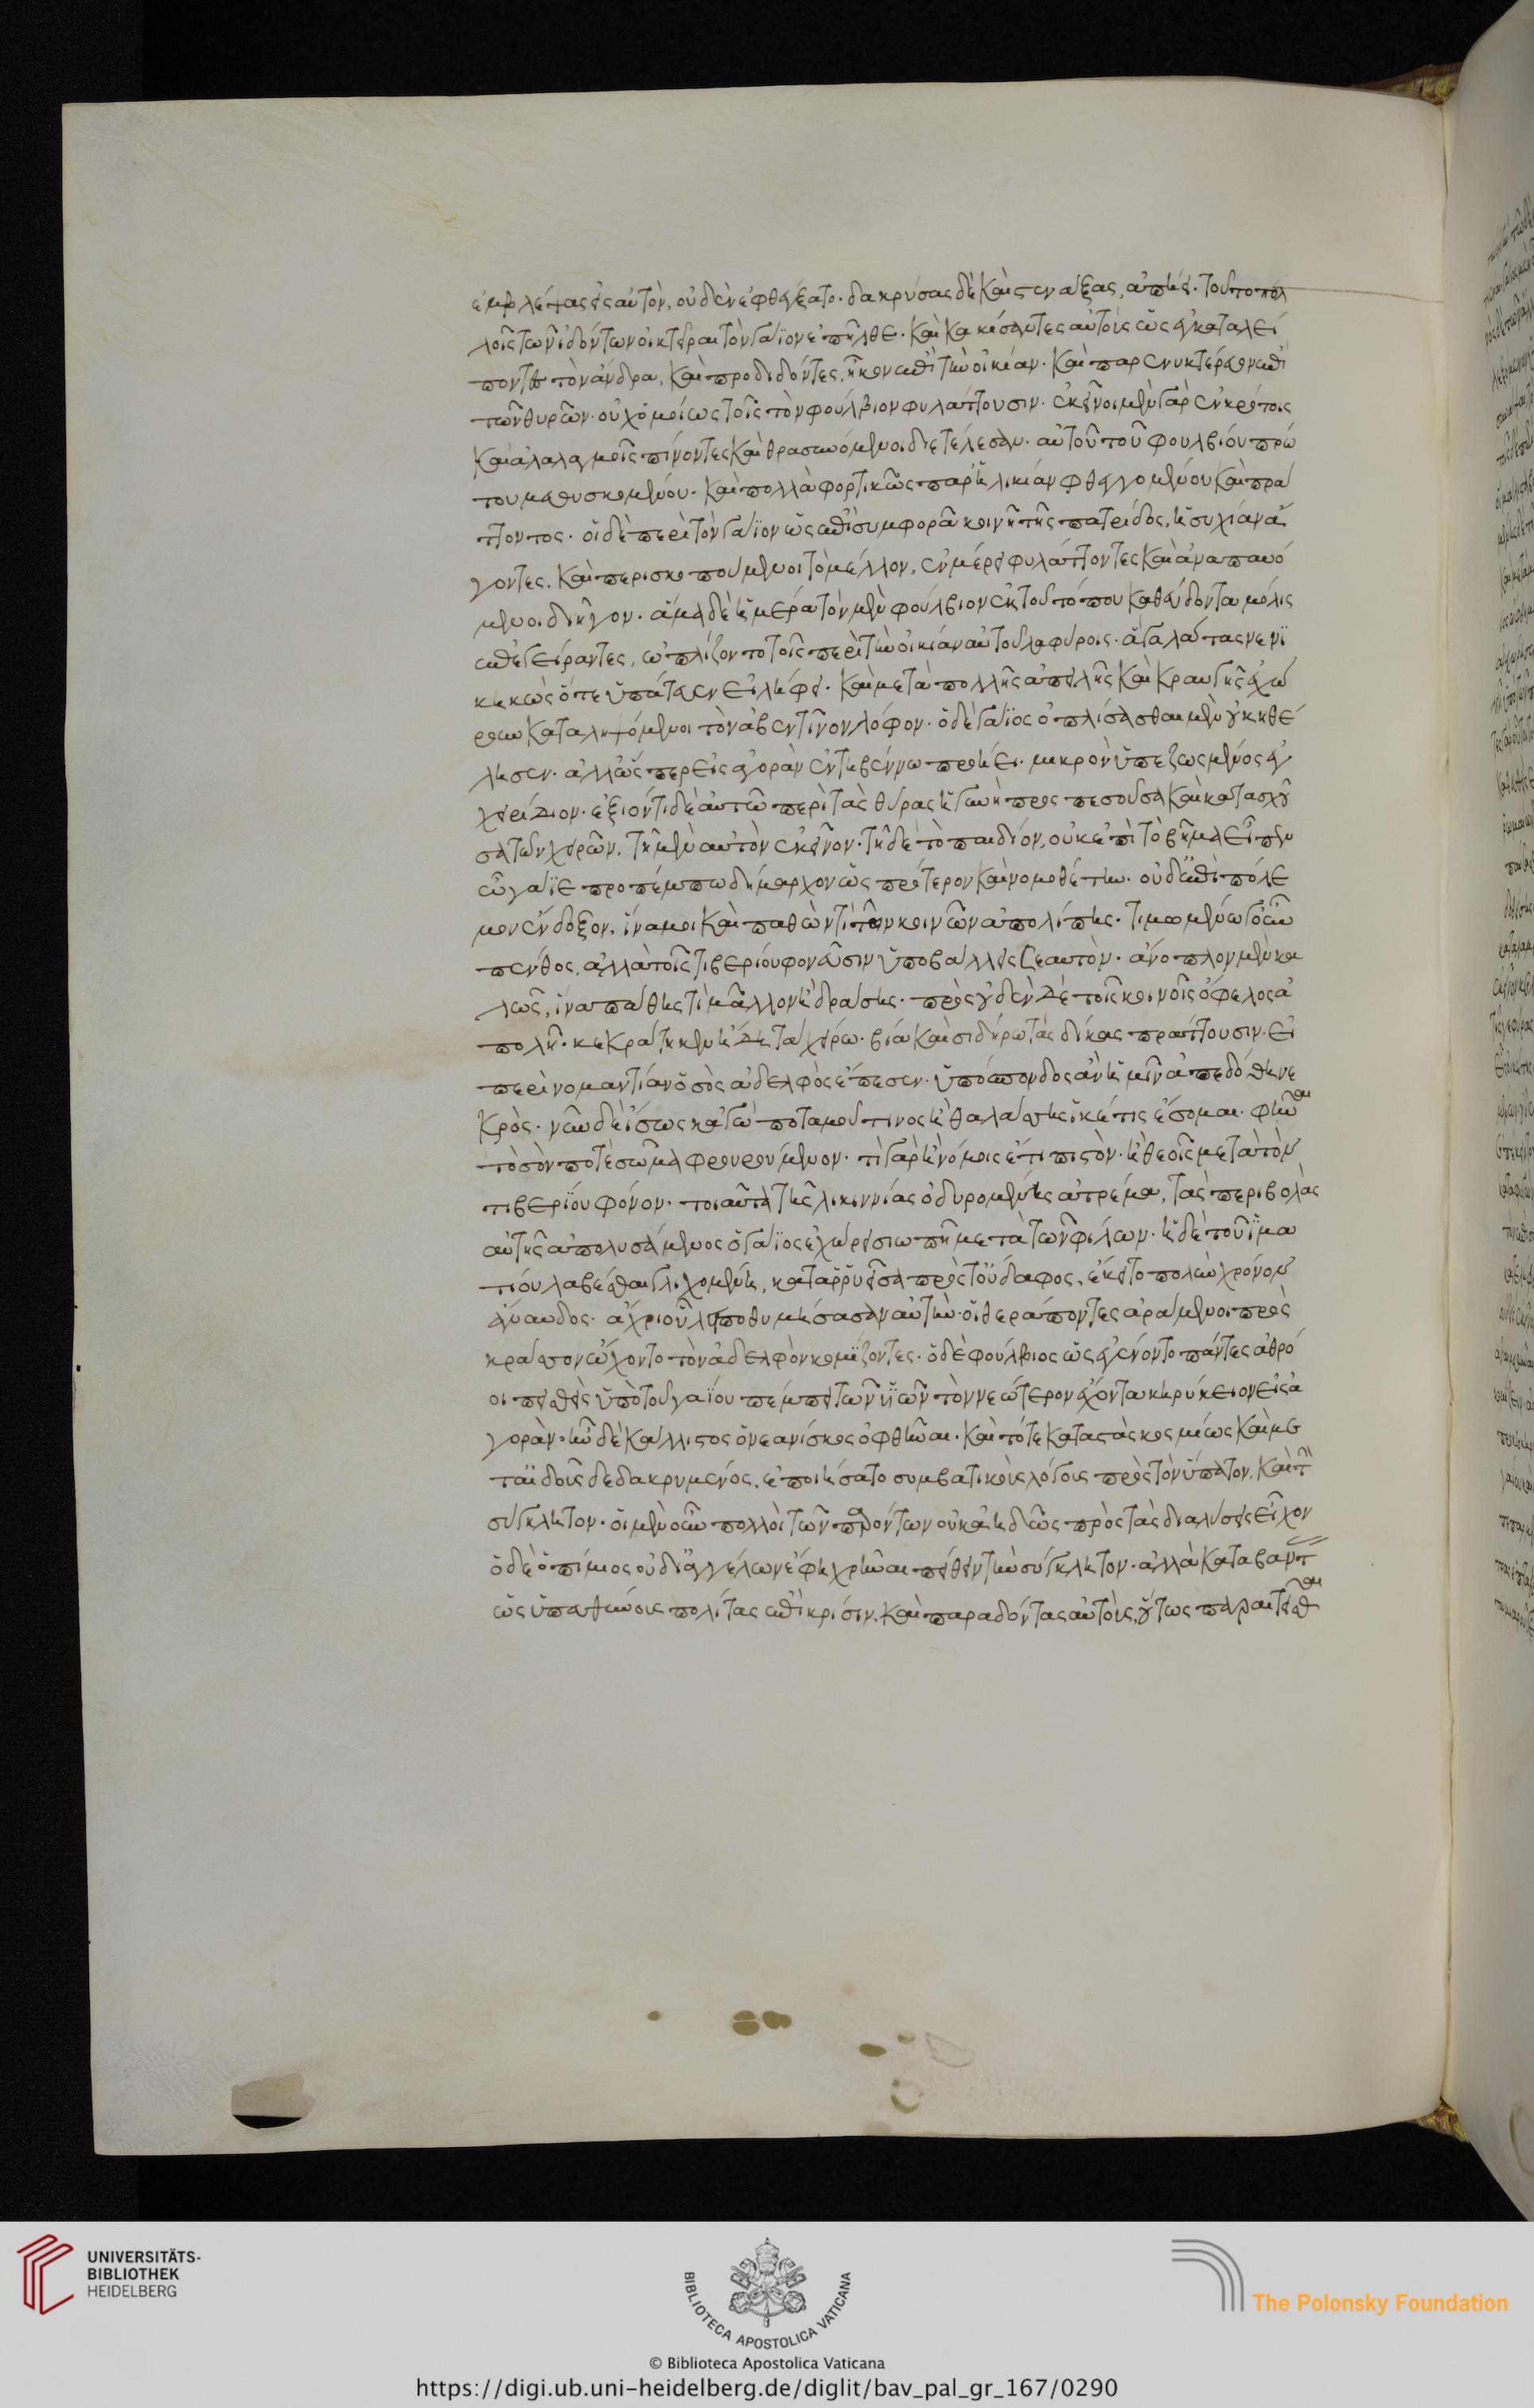 ἐμβλέψας εἰς αὐτὸν, οὐδὲν ἐφθέγξατο. δακρύσας δὲ καὶ στενάξας, ἀπῄει. τοῦτο πολ
λοῖς τῶν ἰδόντων οἰκτεῖραι τὸν γάϊον ἐπῆλθε. καὶ κακίσαντες αὐτοὺς ὡς ἐγκαταλεί
ποντας τὸν ἄνδρα, καὶ προδιδόντες, ἧκον ἐπὶ τὴν οἰκίαν. καὶ παρενυκτέρευον ἐπὶ
τῶν θυρῶν. οὐχ ὁμοίως τοῖς τὸν φούλβιον φυλάττουσιν. ἐκεῖνοι μὲν γὰρ ἐν κρότοις
καὶ ἀλαλαγμοῖς πίνοντες καὶ θρασυνόμενοι διετέλεσαν. αὐτοῦ τοῦ φουλβίου πρώ
του μεθυσκομένου. καὶ πολλὰ φορτικῶς παρ' ἡλικίαν φθεγγομένου καὶ πρά
ττοντος. οἱ δὲ περὶ τὸν γάϊον ὡς ἐπὶ συμφορᾷ κοινῇ τῆς πατρίδος, ἡσυχίαν ἄ
γοντες. καὶ περισκοπούμενοι τὸ μέλλον, ἐν μέρει φυλάττοντες καὶ ἀναπαυό
μενοι διῆγον. ἅμα δὲ ἡμέρα τὸν μὲν φούλβιον ἐκ τοῦ πότου καθεύδοντα μόλις
ἐπεγείραντες, ὡπλίζοντο τοῖς περὶ τὴν οἰκίαν αὐτοῦ λαφύροις. ἃ γαλάτας νενι
κηκὼς ὅτε ὑπάτευεν εἰλήφει. καὶ μετὰ πολλῆς ἀπειλῆς καὶ κραυγῆς ἐχώ
ρουν καταληψόμενοι τὸν ἀβεντῖνον λόφον. ὁ δὲ γάϊος ὁπλίσασθαι μὲν οὐκ ἠθέ
λησεν. ἀλλ' ὥσπερ εἰς ἀγορὰν ἐν τηβέννῳ προῄει. μικρὸν ὑπεζωσμένος ἐγ
χειρίδιον. ἐξιόντι δὲ αὐτῷ περὶ τὰς θύρας ἡ γυνὴ προσπεσοῦσα καὶ κατασχοῦ
σα τῶν χειρῶν. τῇ μὲν αὐτὸν ἐκεῖνον. τῇ δὲ τὸ παιδίον, οὐκ ἐπὶ τὸ βῆμα εἶπεν
ὦ γάϊε προπέμπω δήμαρχον ὡς πρότερον καὶ νομοθέτην. οὐδ' ἐπὶ πόλε
μον ἔνδοξον, ἵνα μοι καὶ παθών τι τῶν κοινῶν ἀπολίπῃς. τιμώμενον γοῦν
πένθος. ἀλλὰ τοῖς τιβερίου φονεῦσιν ὑποβάλλεις σεαυτὸν. ἄνοπλον μὲν κα
λῶς, ἵνα πάθῃς τὶ μᾶλλον ἢ δράσῃς. πρὸς οὐδὲν δὲ τοῖς κοινοῖς ὄφελος ἀ
πολῇ. κεκράτηκεν ἤδη τὰ χείρω. βίᾳ καὶ σιδήρῳ τὰς δίκας πράττουσιν. εἰ
περὶ νομαντίαν ὁ σὸς ἀδελφὸς ἔπεσεν. ὑπόσπονδος ἂν ἡμῖν ἀπεδόθη νε
κρός. νῦν δὲ ἴσως κἀγὼ ποταμοῦ τινος ἢ θαλάττης ἱκέτις ἔσομαι. φῆναι
τὸ σὸν ποτὲ σῶμα φρουρούμενον. τί γὰρ ἢ νόμοις ἔτι πιστὸν. ἢ θεοῖς μετὰ τὸν
τιβερίου φόνον. τοιαῦτα τῆς λικιννίας ὀδυρομένης ἀτρέμα, τὰς περιβολὰς
αὐτῆς ἀπολυσάμενος ὁ γάϊος ἐχώρει σιωπῇ μετὰ τῶν φίλων. ἡ δὲ τοῦ ἱμα
τίου λαβέσθαι γλιχομένη, καταρρυεῖσα πρὸς τοὔδαφος, ἔκειτο πολὺν χρόνον
ἄναυδος. ἄχρι οὗ λιποθυμήσασαν αὐτὴν οἱ θεράποντες ἀράμενοι πρὸς
κράσσον ᾤχοντο τὸν ἀδελφὸν κομίζοντες. ὁ δὲ φούλβιος ὡς ἐγένοντο πάντες ἀθρό
οι πεισθεὶς ὑπὸ τοῦ γαΐου πέμπει τῶν υἱῶν τὸν νεώτερον ἔχοντα κηρύκειον εἰς ἀ
γορὰν. ἦν δὲ κάλλιστος ὁ νεανίσκος ὀφθῆναι. καὶ τότε καταστὰς κοσμίως καὶ με
τ' αἰδοῦς δεδακρυμένος. ἐποιήσατο συμβατικοὺς λόγους πρὸς τὸν ὕπατον. καὶ τὴν
σύγκλητον. οἱ μὲν οὖν πολλοὶ τῶν παρόντων οὐκ ἀηδῶς πρὸς τὰς διαλύσεις εἶχον
ὁ δὲ ὀπίμιος οὐ δι' ἀγγέλων ἔφη χρῆναι πείθειν τὴν σύγκλητον. ἀλλὰ καταβάντας
ὡς ὑπευθύνους πολίτας ἐπὶ κρίσιν. καὶ παραδόντας αὑτοὺς, οὕτως παραιτεῖσθαι
UNIVERSITÄTS-
BIBLIOTHEK
HEIDELBERG
BIBLIOTECA APOSTOLICA VATICANA
The Polonsky Foundation
© Biblioteca Apostolica Vaticana
https://digi.ub.uni-heidelberg.de/diglit/bav_pal_gr_167/0290